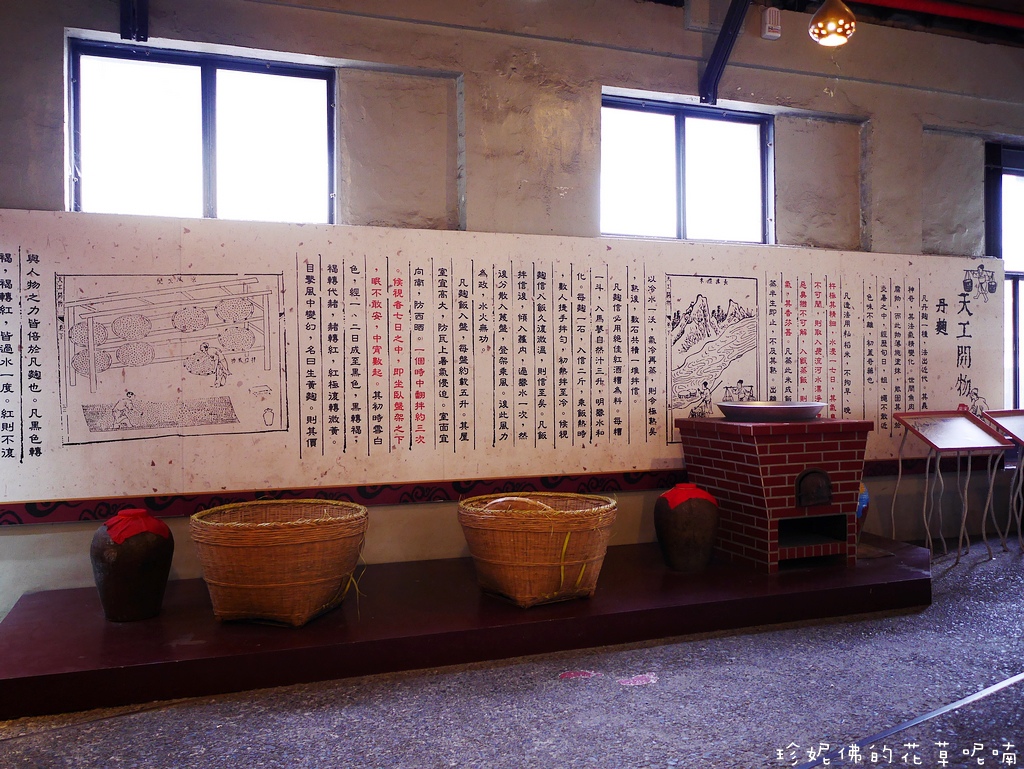 天工開物
丹麴
凡丹麴一種,法出近代。其義
神奇,其法氣精變化。世間魚肉
腐物,而此物薄施塗抹,能固其
炎暑之中,經歷旬日,蛆、蠅不敢近
色味不離初,蓋奇藥也。
凡造法用秈稻米,不拘早、晚。
杵極其精細,水浸一七日,其氣臭
不可聞,則取入長流河水漂
惡臭猶不可解,入甑蒸飯,則
氣,其香芬甚。凡蒸此米成飯
蒸半生即止,不及其熟。出離
以冷水一沃,氣冷再蒸,則令極熟矣
熟後,數石共積一堆拌信。
凡麴信必用絕佳紅酒糟為料。每糟
一斗,入馬蓼自然汁三升,明礬水和
化。每麴一石,入信二斤,乘飯熱時
數人捷手拌勻,初熱拌至冷。候視
麴信入飯久復微溫,則信至矣。凡飯
拌信後,傾入籮內,過礬水一次,然
後分散入篾盤,登架乘風。後此風力
為政,水火無功。
凡麴飯入盤,每盤約載五升。其屋
室宜高大,防瓦上暑氣侵迫。室面宜
向南,防西晒。一個時中翻拌約三次
。候視者七日之中,即坐臥盤架之下
眠不敢安,中宵數起。其初時雪白
色,經一、二日成至黑色,黑轉褐,
褐轉代赭,赭轉紅,紅極復轉微黃。
目擊風中變幻,名曰生黃麴。則其價
與入物之力皆倍於凡麴也。凡黑色轉
褐,褐轉紅,皆過水一度。紅則不復
珍妮佛的花草呢喃